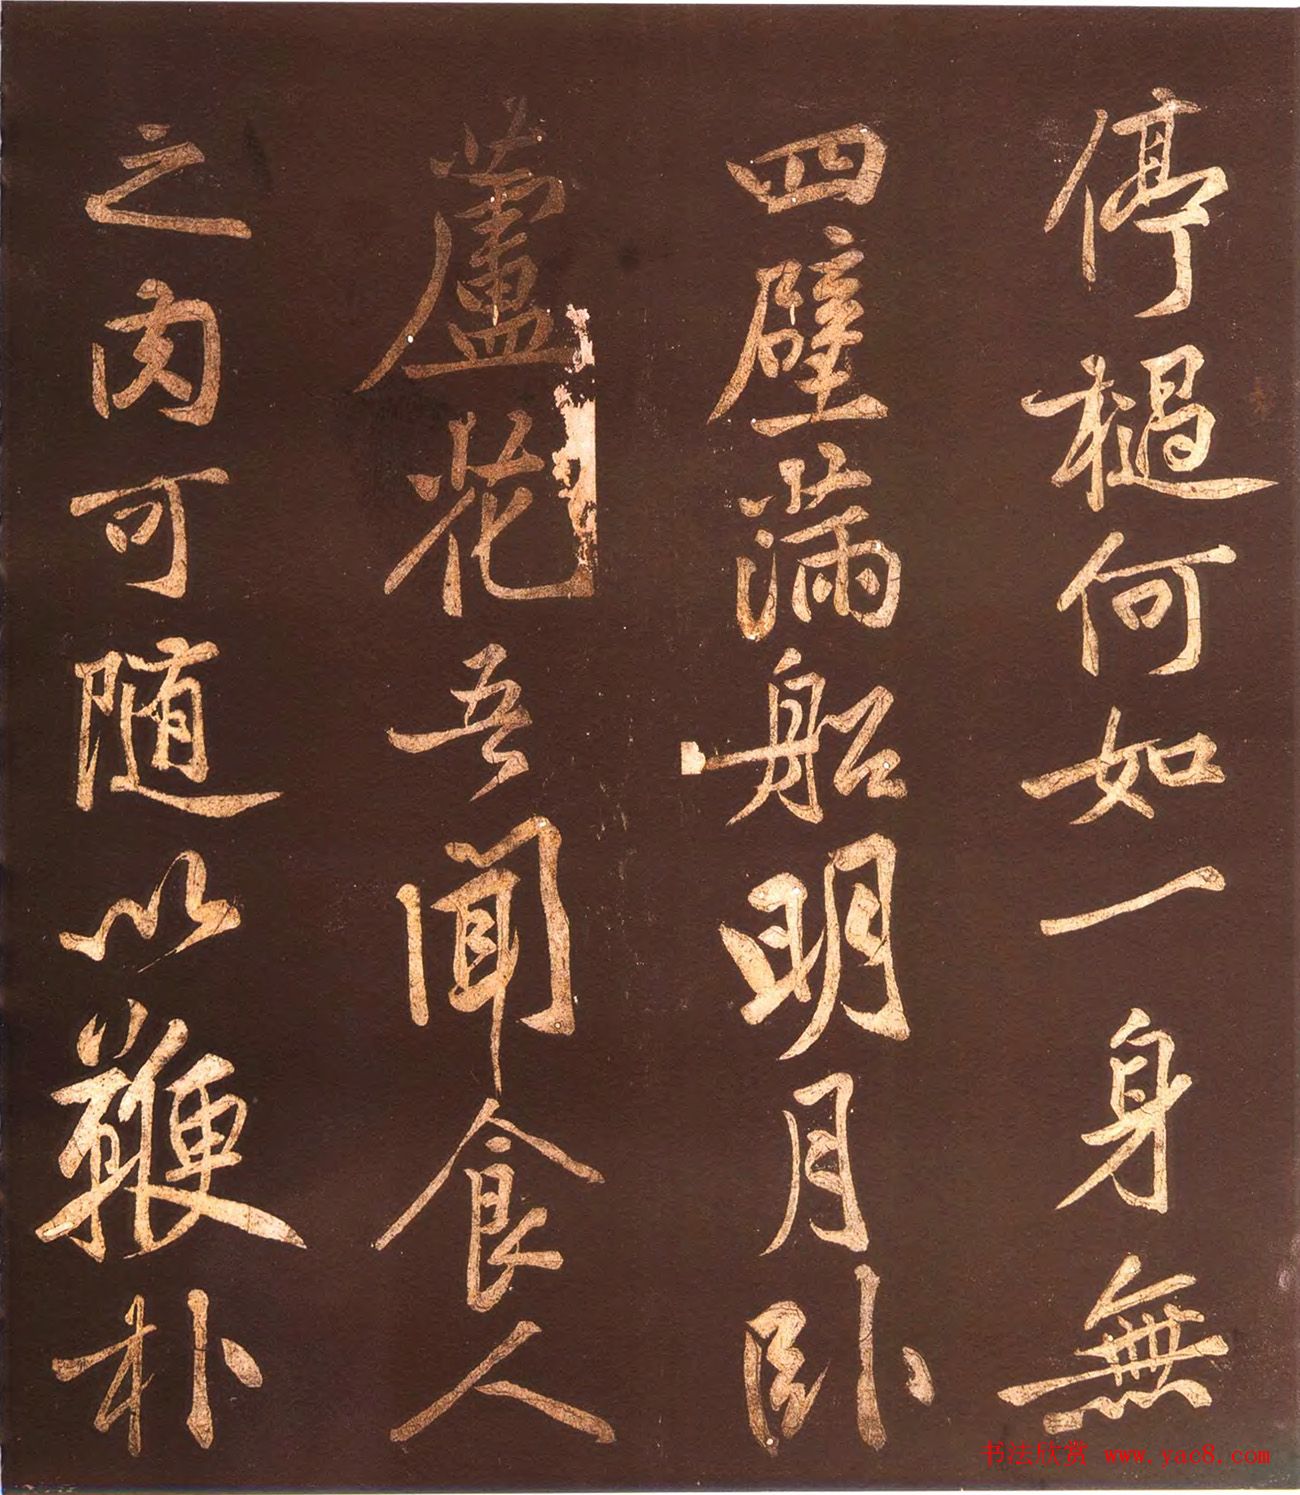 停檛何如一身無
四壁滿船明月卧
蘆花吾聞食人
之肉可随以鞭朴
书法欣赏 www.yac8.com